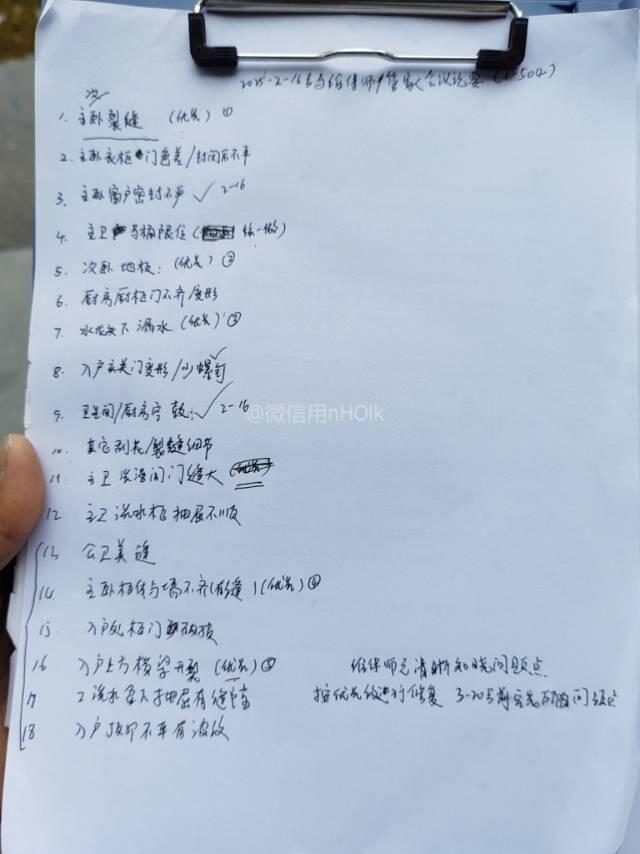 2025-2-16日与维保师/管家会议纪要(1-504)
次
1. 主卧裂缝 (优先) ①
2. 主卧衣柜门色差/封闭后不平
3. 主卧窗户密封不严 ✓ 2-16
4. 主卫马桶限位 ( 统一做)
5. 次卧地板: (优先) ②
6. 厨房厨柜门不齐变形
7. 水龙头下漏水 (优先) ③
8. 入户玄关门变形/少螺钉 ✓
9. 卫生间/厨房空鼓: ✓ 2-16
@微信用nHOlk
10. 其它刮花/裂缝细节
11. 主卫淋浴间门缝大
12 主卫洗水柜抽屉不顺
13. 公卫美缝
14. 主卧柜体与墙不齐(有缝) (优先) ④
15. 入户处柜门
16 入户上方横梁开裂 (优先) ⑤
维保师已清晰知晓问题点
17 洗水盆下抽屉有缝
按优先级进行修复 3-20号前完成所有问题点
18 入户 不平有波纹